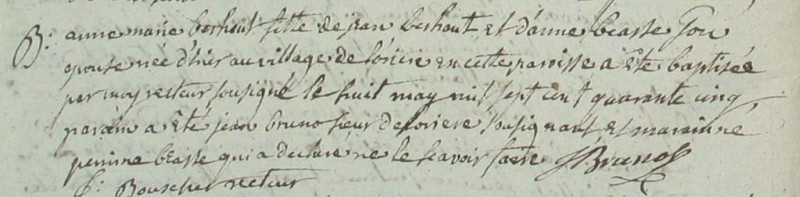 B: anne marie berhaut fille de jean berhaut Et d'anne beasse Son
epouse née d'hier au village de loriere En cette paroisse a Eté baptisée
par moy recteur sousigné le huit may mil sept cent quarante cinq,
parain a Eté jean bruno sieur de loriere sousignant, et maraine
perrine beasse qui a declaré ne le scavoir faire JBruno
f: Bouscher recteur